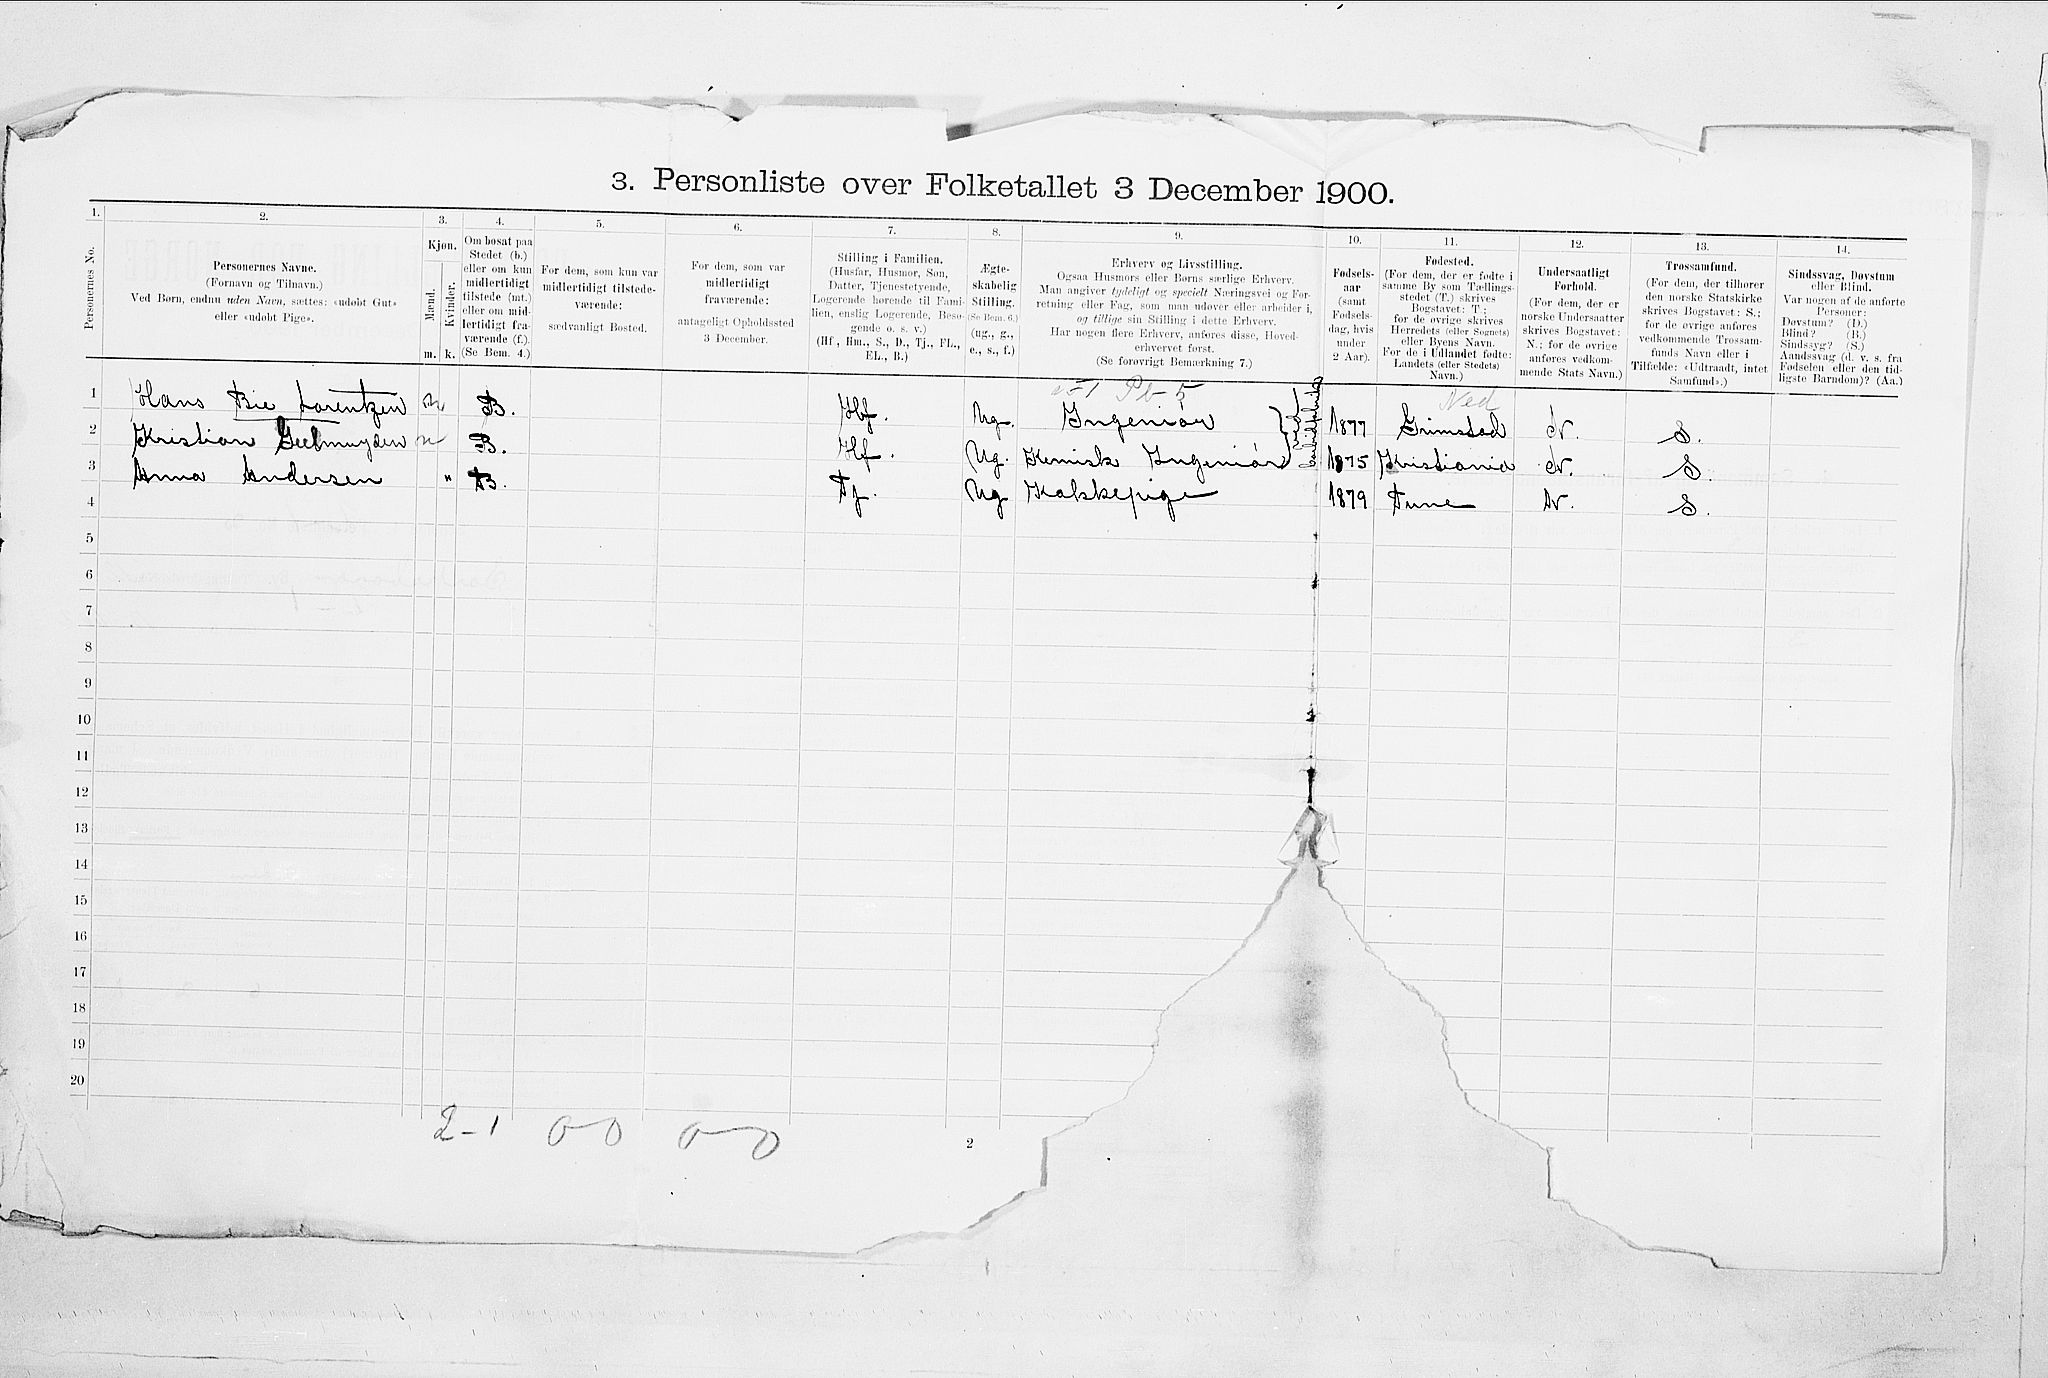 3. Personliste over Folketallet 3 December 1900.
1. 2. 3. 4. 5. 6. 7. 8. 9. 10. 11. 12. 13. 14.
Personernes No.
Personernes Navne.
(Fornavn og Tilnavn.)
Ved Børn, endnu uden Navn, sættes: «udøbt Gut»
eller «udøbt Pige».
Kjøn.
Mænd.
Kvinder.
m. k.
Om bosat paa
Stedet (b.)
eller om kun
midlertidigt
tilstede (mt.)
eller om mid-
lertidigt fra-
værende (f.)
(Se Bem. 4.)
For dem, som kun var
midlertidigt tilstede-
værende:
sædvanligt Bosted.
For dem, som var
midlertidigt
fraværende:
antageligt Opholdssted
3 December.
Stilling i Familien.
(Husfar, Husmor, Søn,
Datter, Tjenestetyende,
Logerende hørende til Fami-
lien, enslig Logerende, Besø-
gende o. s. v.)
(Hf., Hm., S., D., Tj., FL.,
EL., B.)
Ægte-
skabelig
Stilling.
(Se Bem. 6.)
(ug., g.,
e., s., f.)
Erhverv og Livsstilling.
Ogsaa Husmors eller Børns særlige Erhverv.
Man angiver tydeligt og specielt Næringsvei og For-
retning eller Fag, som man udøver eller arbeider i,
og tillige sin Stilling i dette Erhverv.
Har nogen flere Erhverv, anføres disse, Hoved-
erhvervet først.
(Se forøvrigt Bemærkning 7.)
Fødsels-
aar
(samt
Fødsels-
dag, hvis
under
2 Aar).
Fødested.
(For dem, der er fødte i
samme By som Tællings-
stedet (T.) skrives
Bogstavet: T.;
for de øvrige skrives
Herredets (eller Sognets)
eller Byens Navn.
For de i Udlandet fødte:
Landets (eller Stedets)
Navn.)
Undersaatligt
Forhold.
(For dem, der er
norske Undersaatter
skrives Bogstavet:
N.; for de øvrige
anføres vedkom-
mende Stats Navn.)
Trossamfund.
(For dem, der tilhører
den norske Statskirke
skrives Bogstavet: S.;
for de øvrige anføres
vedkommende Trossam-
funds Navn eller i
Tilfælde: «Udtraadt, intet
Samfund».)
Sindssvag, Døvstum
eller Blind.
Var nogen af de anførte
Personer:
Døvstum? (D.)
Blind? (B.)
Sindssyg? (S.)
Aandssvag (d. v. s. fra
Fødselen eller den tid-
ligste Barndom)? (Aa.)
Pb 5 Ned
1 Hans Bie Lorentzen m B. Hf. Ug. Ingeniör ved 1877 Grimstad N. S.
2 Kristian Geelmuyden m B. Hf. Ug. Kemisk Ingeniör 1875 Kristiania N. S.
3 Anna Andersen " B. Tj. Ug Kokkepige 1879 Tune N. S.
4
5
6
7
8
9
10
11
12
13
14
15
16
17
18
19
20
2-1 0-0 0-0
2